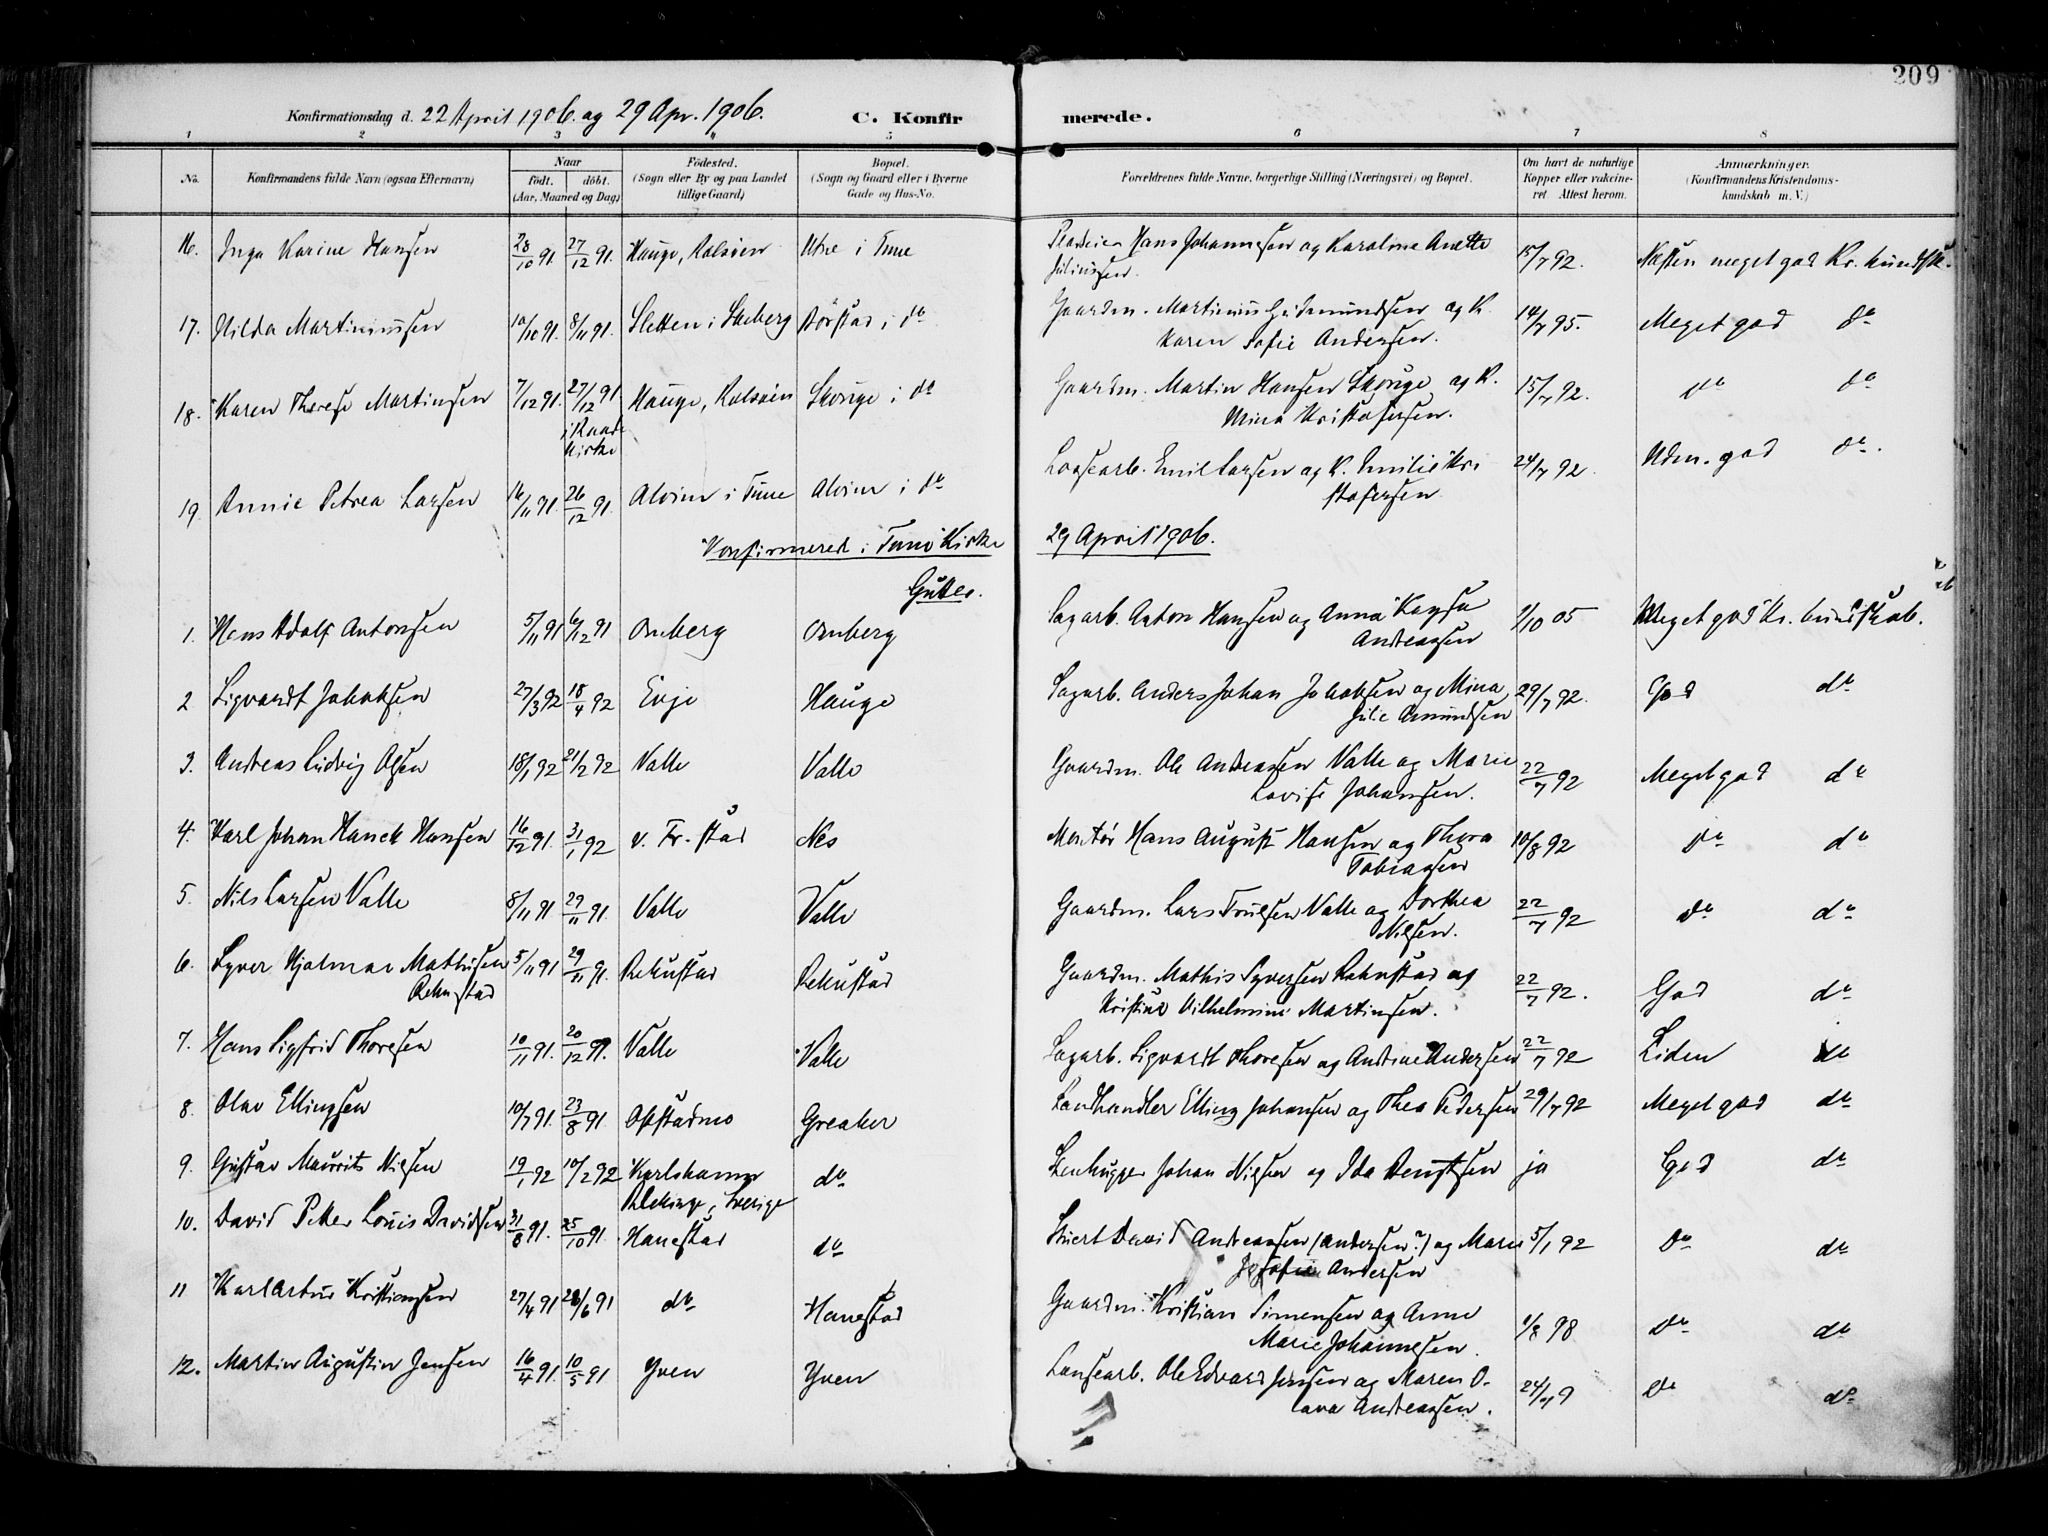 209
Konfirmationsdag d. 22 April 1906. og 29 Apr. 1906. C. Konfirmerede.
1 2 3 4 5 6 7 8
No. Konfirmandens fulde Navn (ogsaa Efternavn) Naar født. døbt. (Aar, Maaned og Dag) Fødested. (Sogn eller By og paa Landet tillige Gaard) Bopæl. (Sogn og Gaard eller i Byerne Gade og Hus-No. Forældrenes fulde Navne, borgerlige Stilling (Næringsvei) og Bopæl. Om havt de naturlige Kopper eller vaccineret Attest herom. Anmærkninger. (Konfirmandens Kristendomskundskab m. V.)
16. Inga Karine Hansen 28/10 91. 27/12 91. Hauge, Rolsøien Utne i Tune Hans Johannesen og Karoline Anette 15/7 92. Næsten meget god Kr. kundsk.
Juliussen.
17. Hilda Martinussen 10/10 91. 8/11 91. Sletten i Skeberg Børstad i do Gaardm. Martinius Gudmundsen og K. 14/7 95. Meget god do
Karen Sofie Andersen.
18. Karen Therese Martinsen 7/12 91. 27/12 91 Hauge, Rolsøien Skouge i do Gaardm. Martin Hansen Skouge og K. 15/7 92. do do
i Raade Mina Kristofersen.
Kirke
19. Annie Petrea Larsen 16/11 91. 26/12 91. Alvim i Tune Alvim i do Løsearb. Emil Larsen og K. Emilie Kri 24/7 92. Udm. god do.
stofersen
Konfirmered i Tune Kirke 29 April 1906.
Gutter.
1. Hans Adolf Antonsen 5/11 91 6/12 91 Omberg Omberg Sagarb. Anton Hansen og Anna Kaysa 1/10 05 Meget god Kr. kundskab.
Andreassen
2 Sigvardt Jakobsen 27/3 92 18/4 92 Evje Hauge Sagarb. Anders Johan Jakobsen og Mina 29/7 92. God do
Julie Amundsen
3. Andreas Ludvig Olsen 18/1 92 21/2 92 Valle Valle Gaardm. Ole Andreassen Valle og Marie 22/7 92 Meget god do
Lovise Johansen.
4. Karl Johan Hauch Hansen 16/12 91. 31/1 92 v. Fr.stad Nes Montør Hans August Hansen og Thora 10/8 92 do do
Tobiassen
5. Nils Larsen Valle 8/11 91 29/11 91. Valle Valle Gaardm. Lars Truelsen Valle og Dorthea 22/7 92 do do
Nilsen.
6. Syver Hjalmar Mathisen 5/11 91 29/11 91. Rekustad Rekustad Gaardm. Mathis Syversen Rekustad og 22/7 92. God do
Rekustad Kristine Vilhelmine Martinsen.
7. Hans Sigfrid Thoresen 10/11 91. 20/12 91. Valle Valle Sagarb. Sigvardt Thoresen og Andrine Andersen 22/7 92 Liden do
8. Olav Ellingsen 10/7 91. 23/8 91 Opstadmo Greaker Landhandler Elling Johansen og Thea Pedersen 29/7 92 Meget god do
9. Gustav Maurits Nilsen 19/1 92 10/2 92 Karlshamn do Stenhugger Johan Nilsen og Ida Bengtsen ja God do
Blekinge, Sverige
10. David Petter Louis Davidsen 31/8 91. 25/10 91 Hanestad do Stuert David Andreassen (Andersen?) og Marie 5/1 92 do do
Josefine Andersen
11 Karl Artur Kristiansen 27/4 91 28/6 91 do Hanestad Gaardm. Kristian Simensen og Anne 1/8 98 do do
Marie Johannesen.
12. Martin Augustin Jensen 16/4 91. 10/5 91 Yven Yven Løusearb. Ole Edvard Jensen og Maren O- 24/7 9 do do
lava Andreassen.